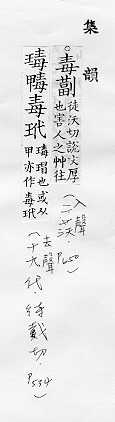 集韻
毒 徒沃切說文厚
也害人之艸往
(入聲 二沃 P650)
瑇 毒玳 瑇瑁也或从
甲亦作毒玳
(去聲 十九代 待戴切 P534)